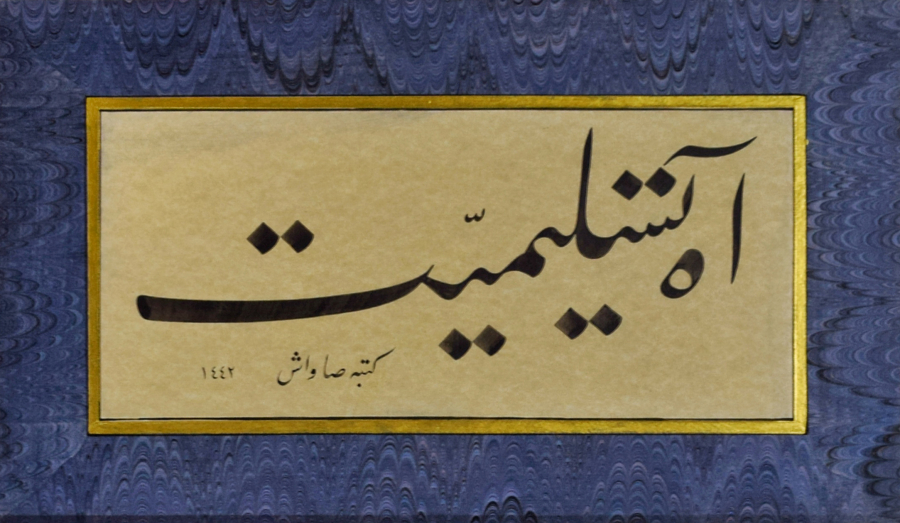 آه تسليميّت
كتبه صاواش ١٤٤٢